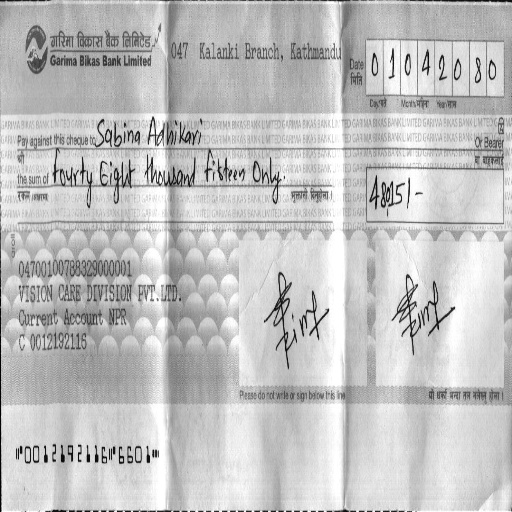 गरिमा विकास बैंक लिमिटेड
Garima Bikas Bank Limited
047 Kalanki Branch, Kathmandu
Date मिति 01042080
Day/गते Month/महिना Year/साल
Pay against this cheque to Sabina Adhikari
को
Or Bearer
वा वाहकलाई
the sum of fourty Eight thousand fifteen Only.
रकम
48,015/-
04700100788329000001
VISION CARE DIVISION PVT.LTD.
Current Account NPR
C 0012192116
Please do not write or sign below this line
⑈0012192116⑈6601⑈